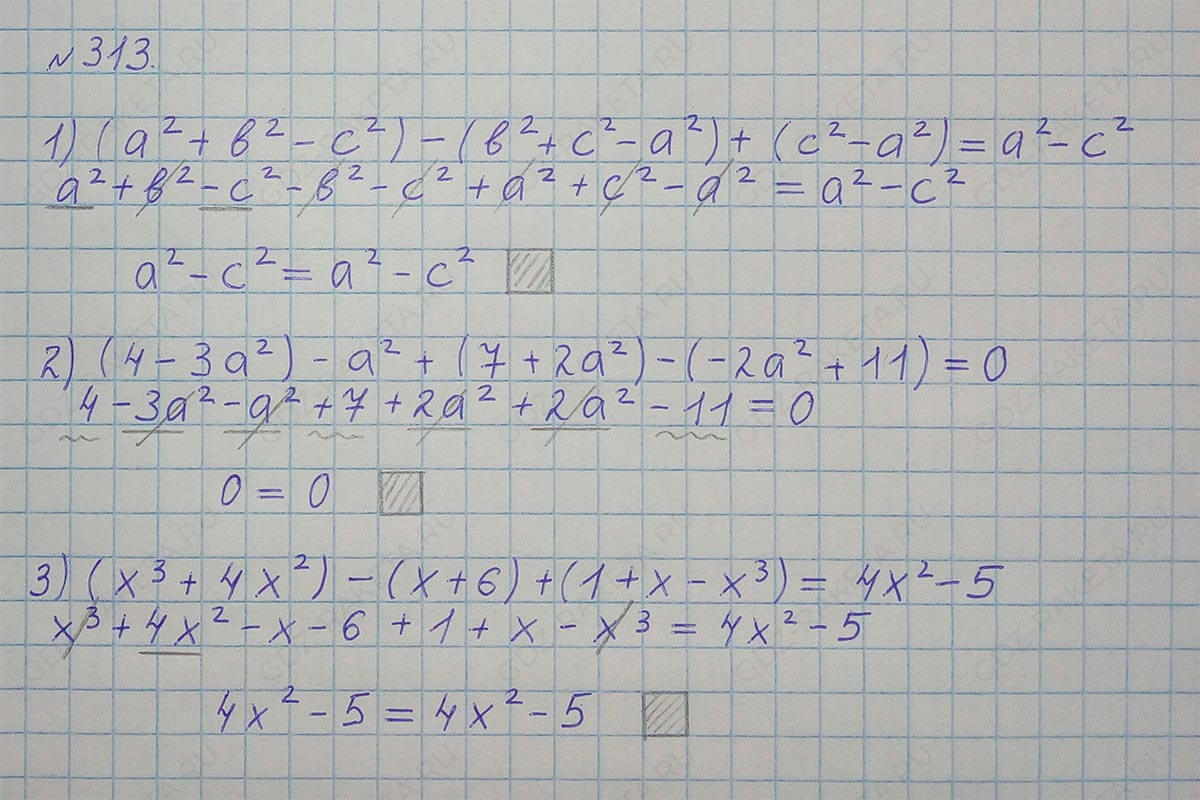 №313.
1) (a² + b² - c²) - (b² + c² - a²) + (c² - a²) = a² - c²
a² + b² - c² - b² - c² + a² + c² - a² = a² - c²
a² - c² = a² - c²
2) (4 - 3a²) - a² + (7 + 2a²) - (-2a² + 11) = 0
4 - 3a² - a² + 7 + 2a² + 2a² - 11 = 0
0 = 0
3) (x³ + 4x²) - (x + 6) + (1 + x - x³) = 4x² - 5
x³ + 4x² - x - 6 + 1 + x - x³ = 4x² - 5
4x² - 5 = 4x² - 5